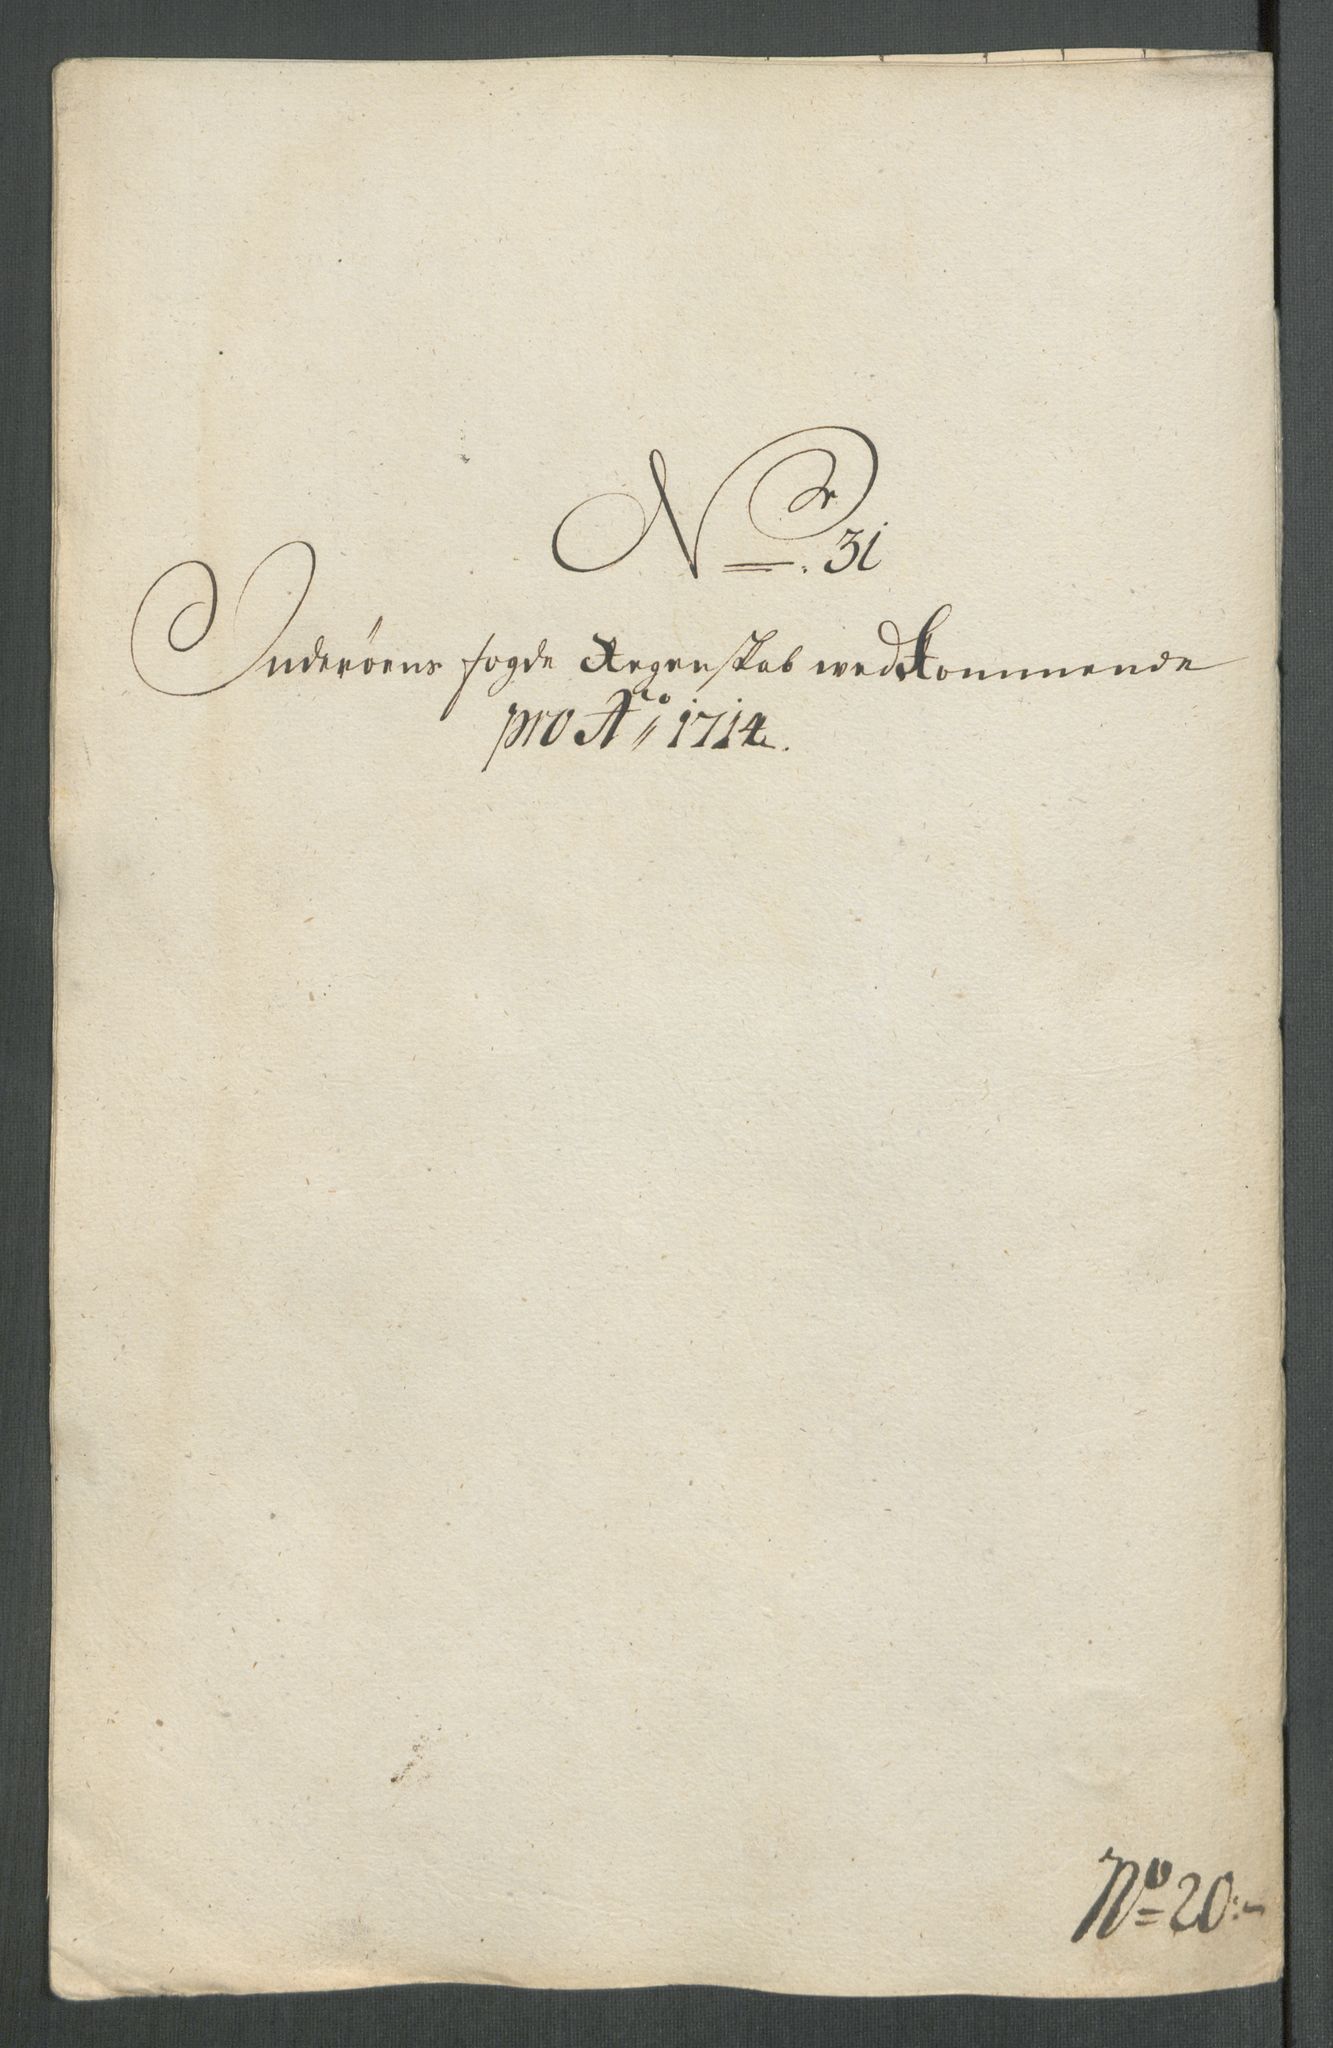 Nr. 31
Inderöens fogde Regenskab wedkommende
pro Ao 1714.
No 20: